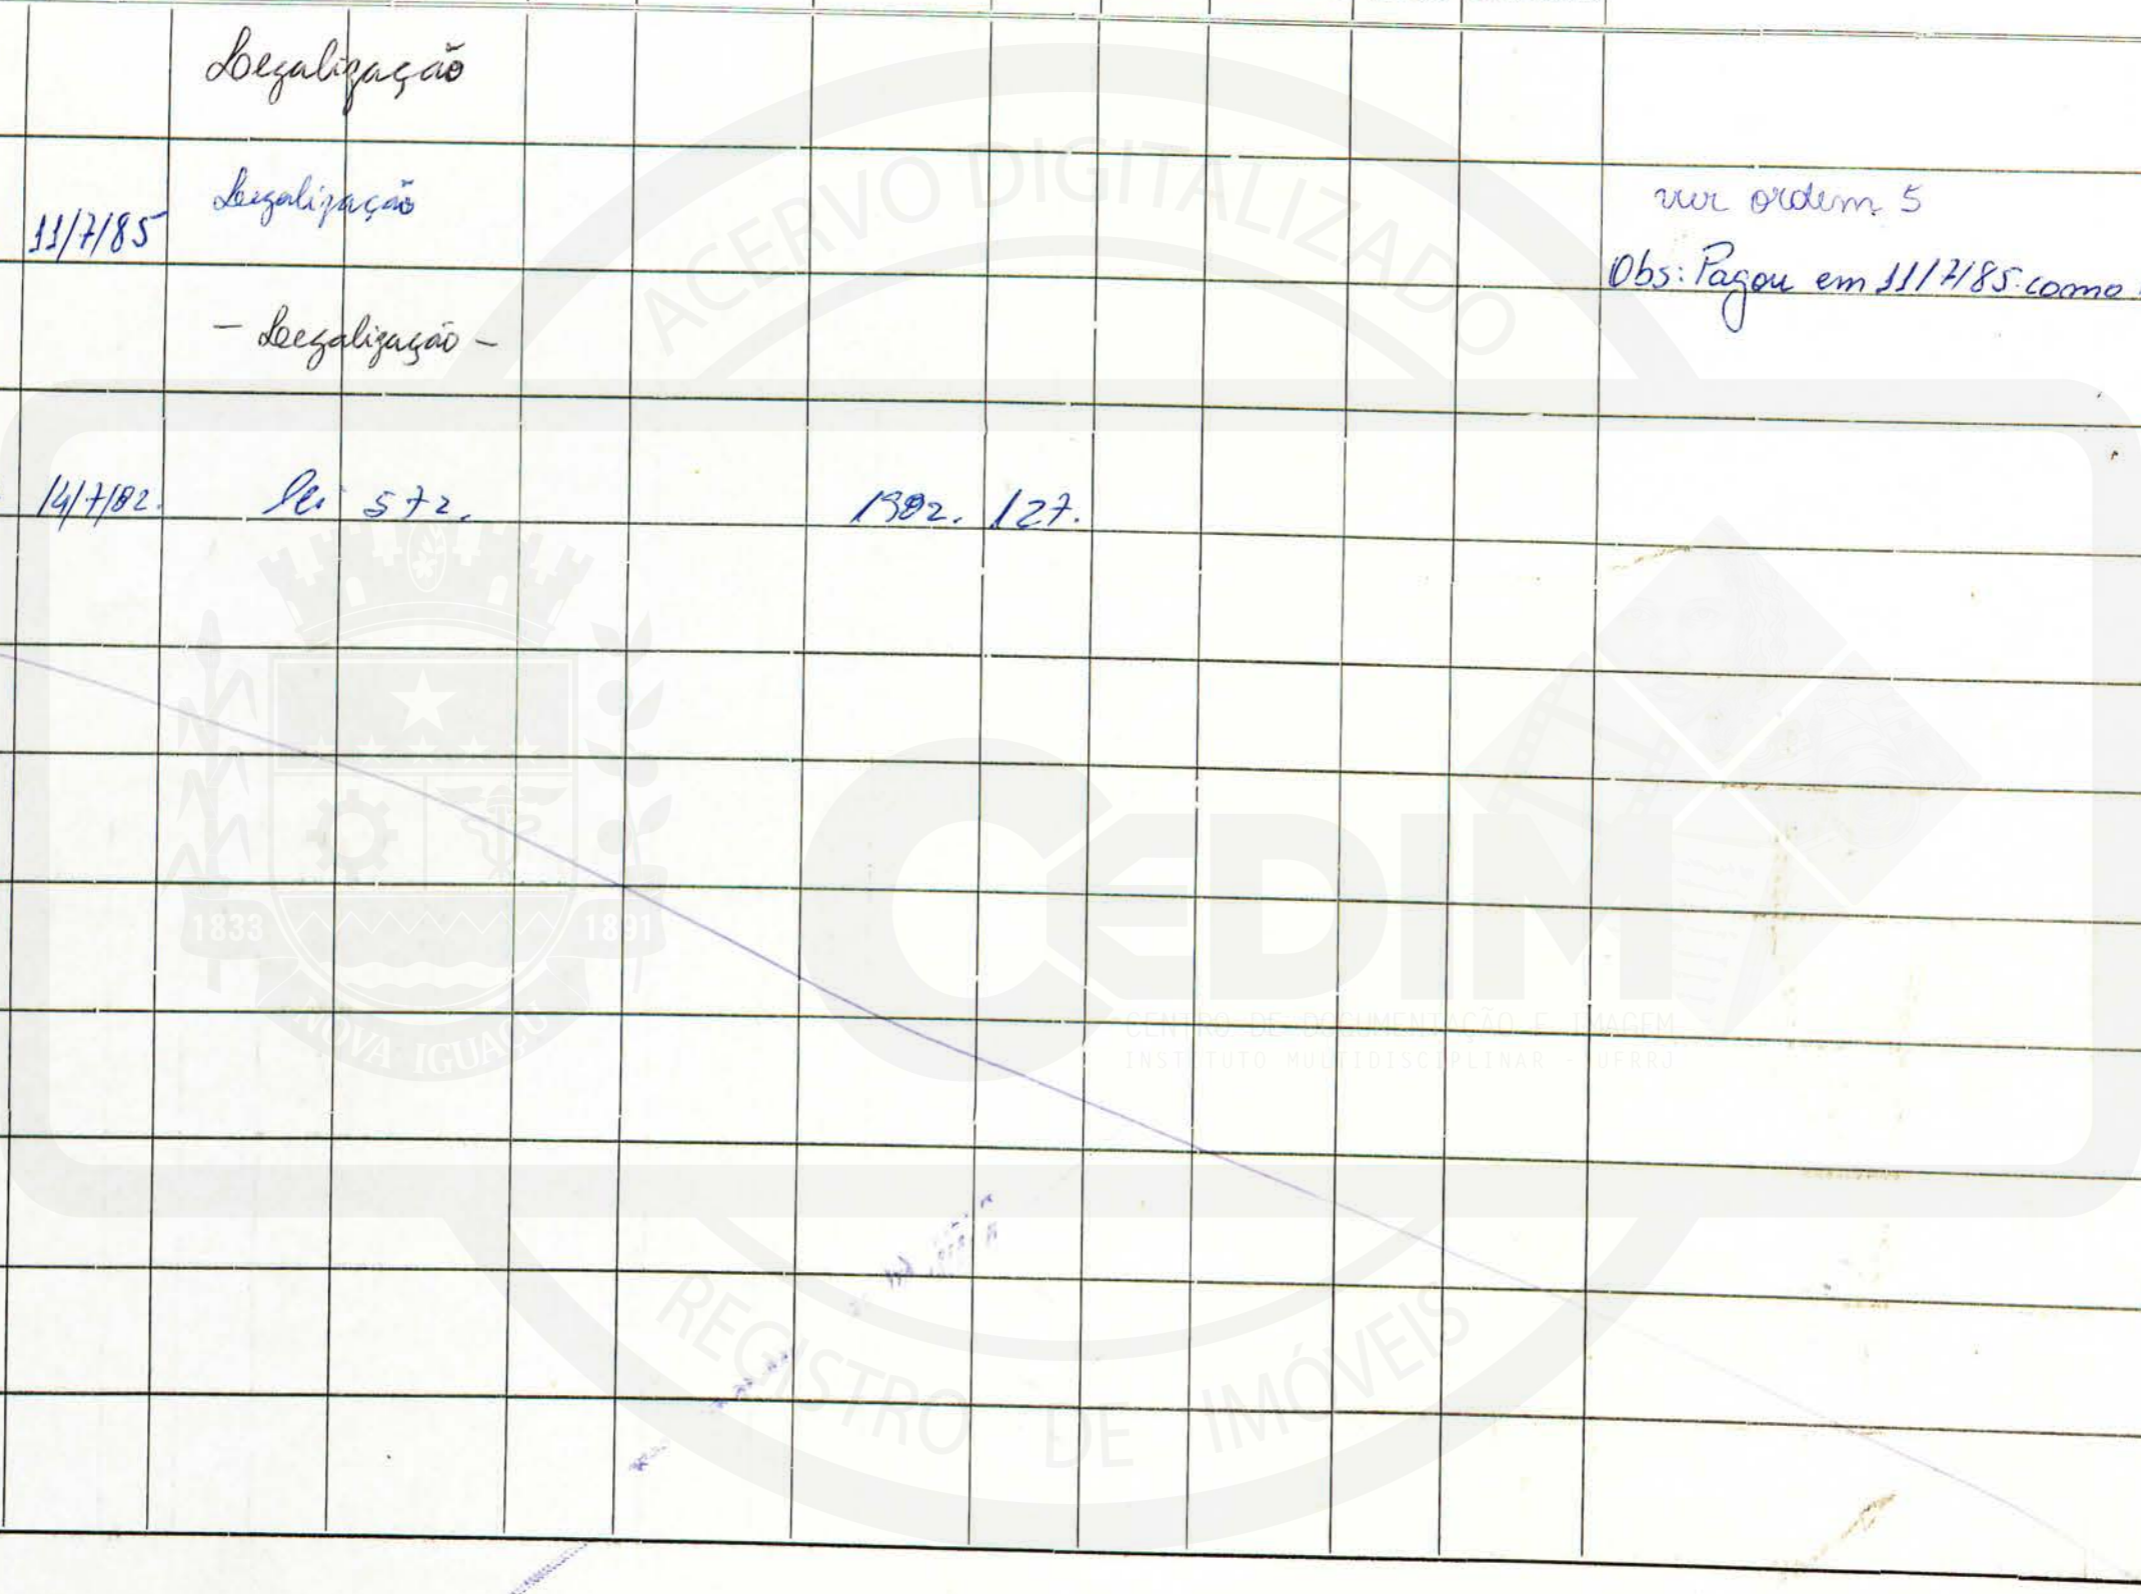 Legalização
Legalização
ver ordem 5
11/7/85
Obs: Pagou em 11/7/85 como
- Legalização -
14/7/82. lei 572. 1982. 127.
ACERVO DIGITALIZADO
1833 1891
NOVA IGUAÇU
CEDIM
CENTRO DE DOCUMENTAÇÃO E IMAGEM
INSTITUTO MULTIDISCIPLINAR - UFRRJ
REGISTRO DE IMÓVEIS